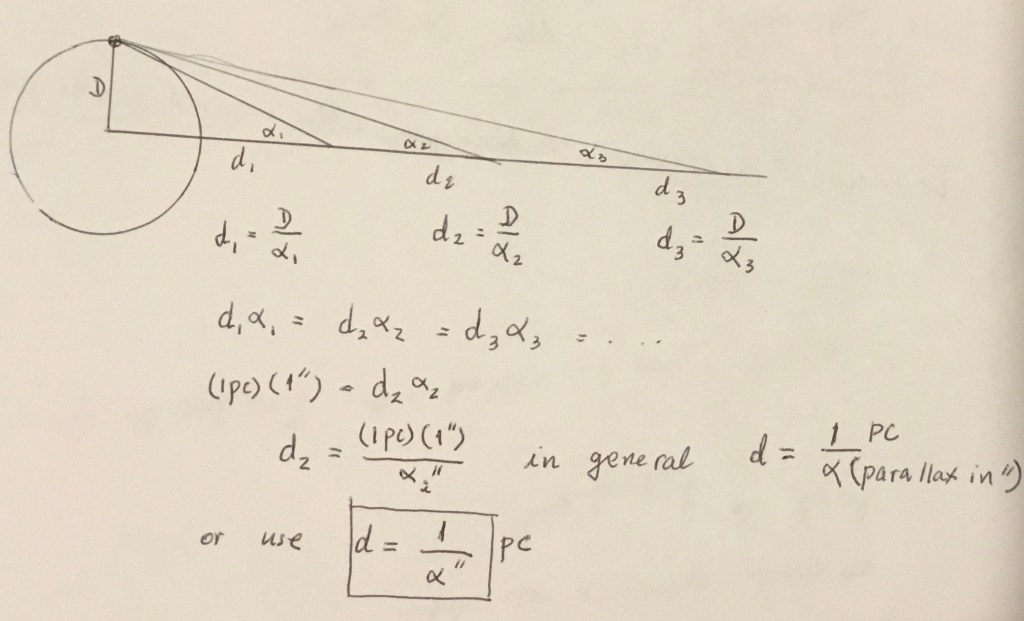 D
α₁ α₂ α₃
d₁ d₂ d₃
d₁ = D/α₁ d₂ = D/α₂ d₃ = D/α₃
d₁α₁ = d₂α₂ = d₃α₃ = ....
(1pc)(1") = d₂α₂
d₂ = (1pc)(1")/α₂" in general d = 1/α pc (parallax in ")
or use d = 1/α" pc